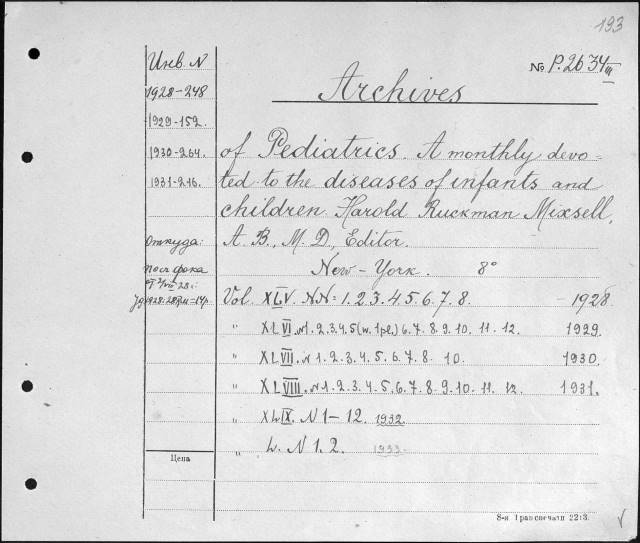 193
№ P.2634 III
Archives
of Pediatrics. A monthly devo-
ted to the diseases of infants and
children. Harold Ruckman Mixsell,
A. B., M. D., Editor.
New-York. 8°
Vol. XLV. NN=1.2.3.4.5.6.7.8. -1928
" XLVI. N1.2.3.4.5(w.1pl.)6.7.8.9.10.11.12. 1929.
" XLVII. N1.2.3.4.5.6.7.8. 10. 1930.
" XLVIII. N1.2.3.4.5.6.7.8.9.10.11.12. 1931.
" XLIX. N1-12. 1932.
" L. N1.2. 1933.
Инв N
1928-248
1929-152.
1930-264.
1931-216.
Откуда:
Цена
8-я 22:3.